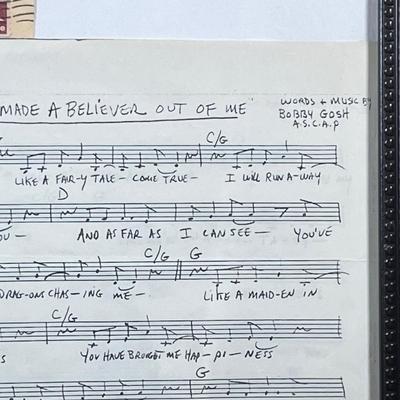 MADE A BELIEVER OUT OF ME
WORDS & MUSIC BY
BOBBY GOSH
A.S.C.A.P
C/G
LIKE A FAIR-Y TALE- COME TRUE- I WILL RUN A-WAY
D
AND AS FAR AS I CAN SEE- YOU'VE
C/G G
DRAG-ONS CHAS-ING ME- LIKE A MAID-EN IN
C/G
YOU HAVE BROUGHT ME HAP-PI-NESS
G